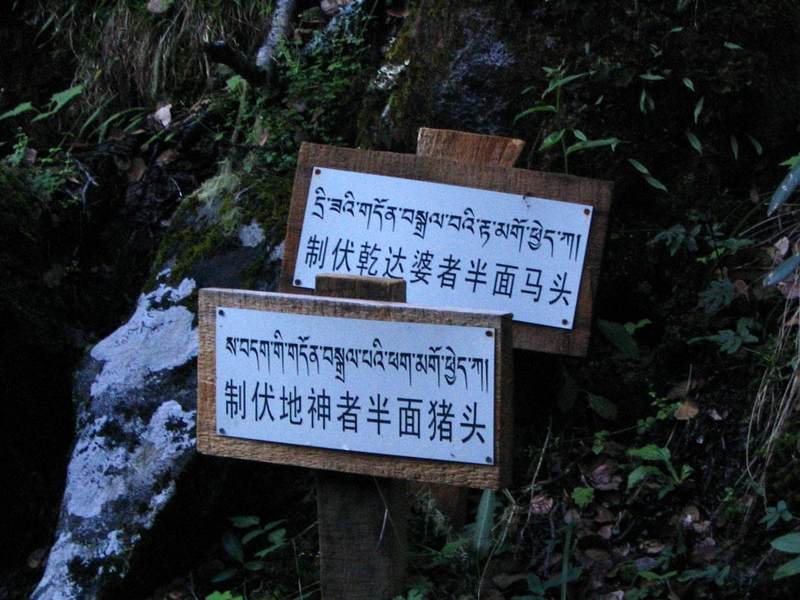 དྲི་ཟའི་གདོན་བསྒྲལ་བའི་རྟ་མགོ་ཕྱེད་ཀ།
制伏乾达婆者半面马头
ས་བདག་གི་གདོན་བསྒྲལ་པའི་ཕག་མགོ་ཕྱེད་ཀ།
制伏地神者半面猪头